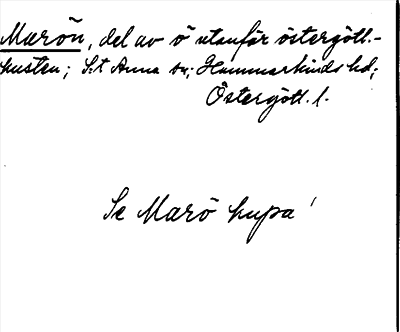 Marön, del av ö utanför östergötl.-
kusten; S:t Anna sn; Hammarkinds hd;
Östergötl. l.
Se Marö kupa